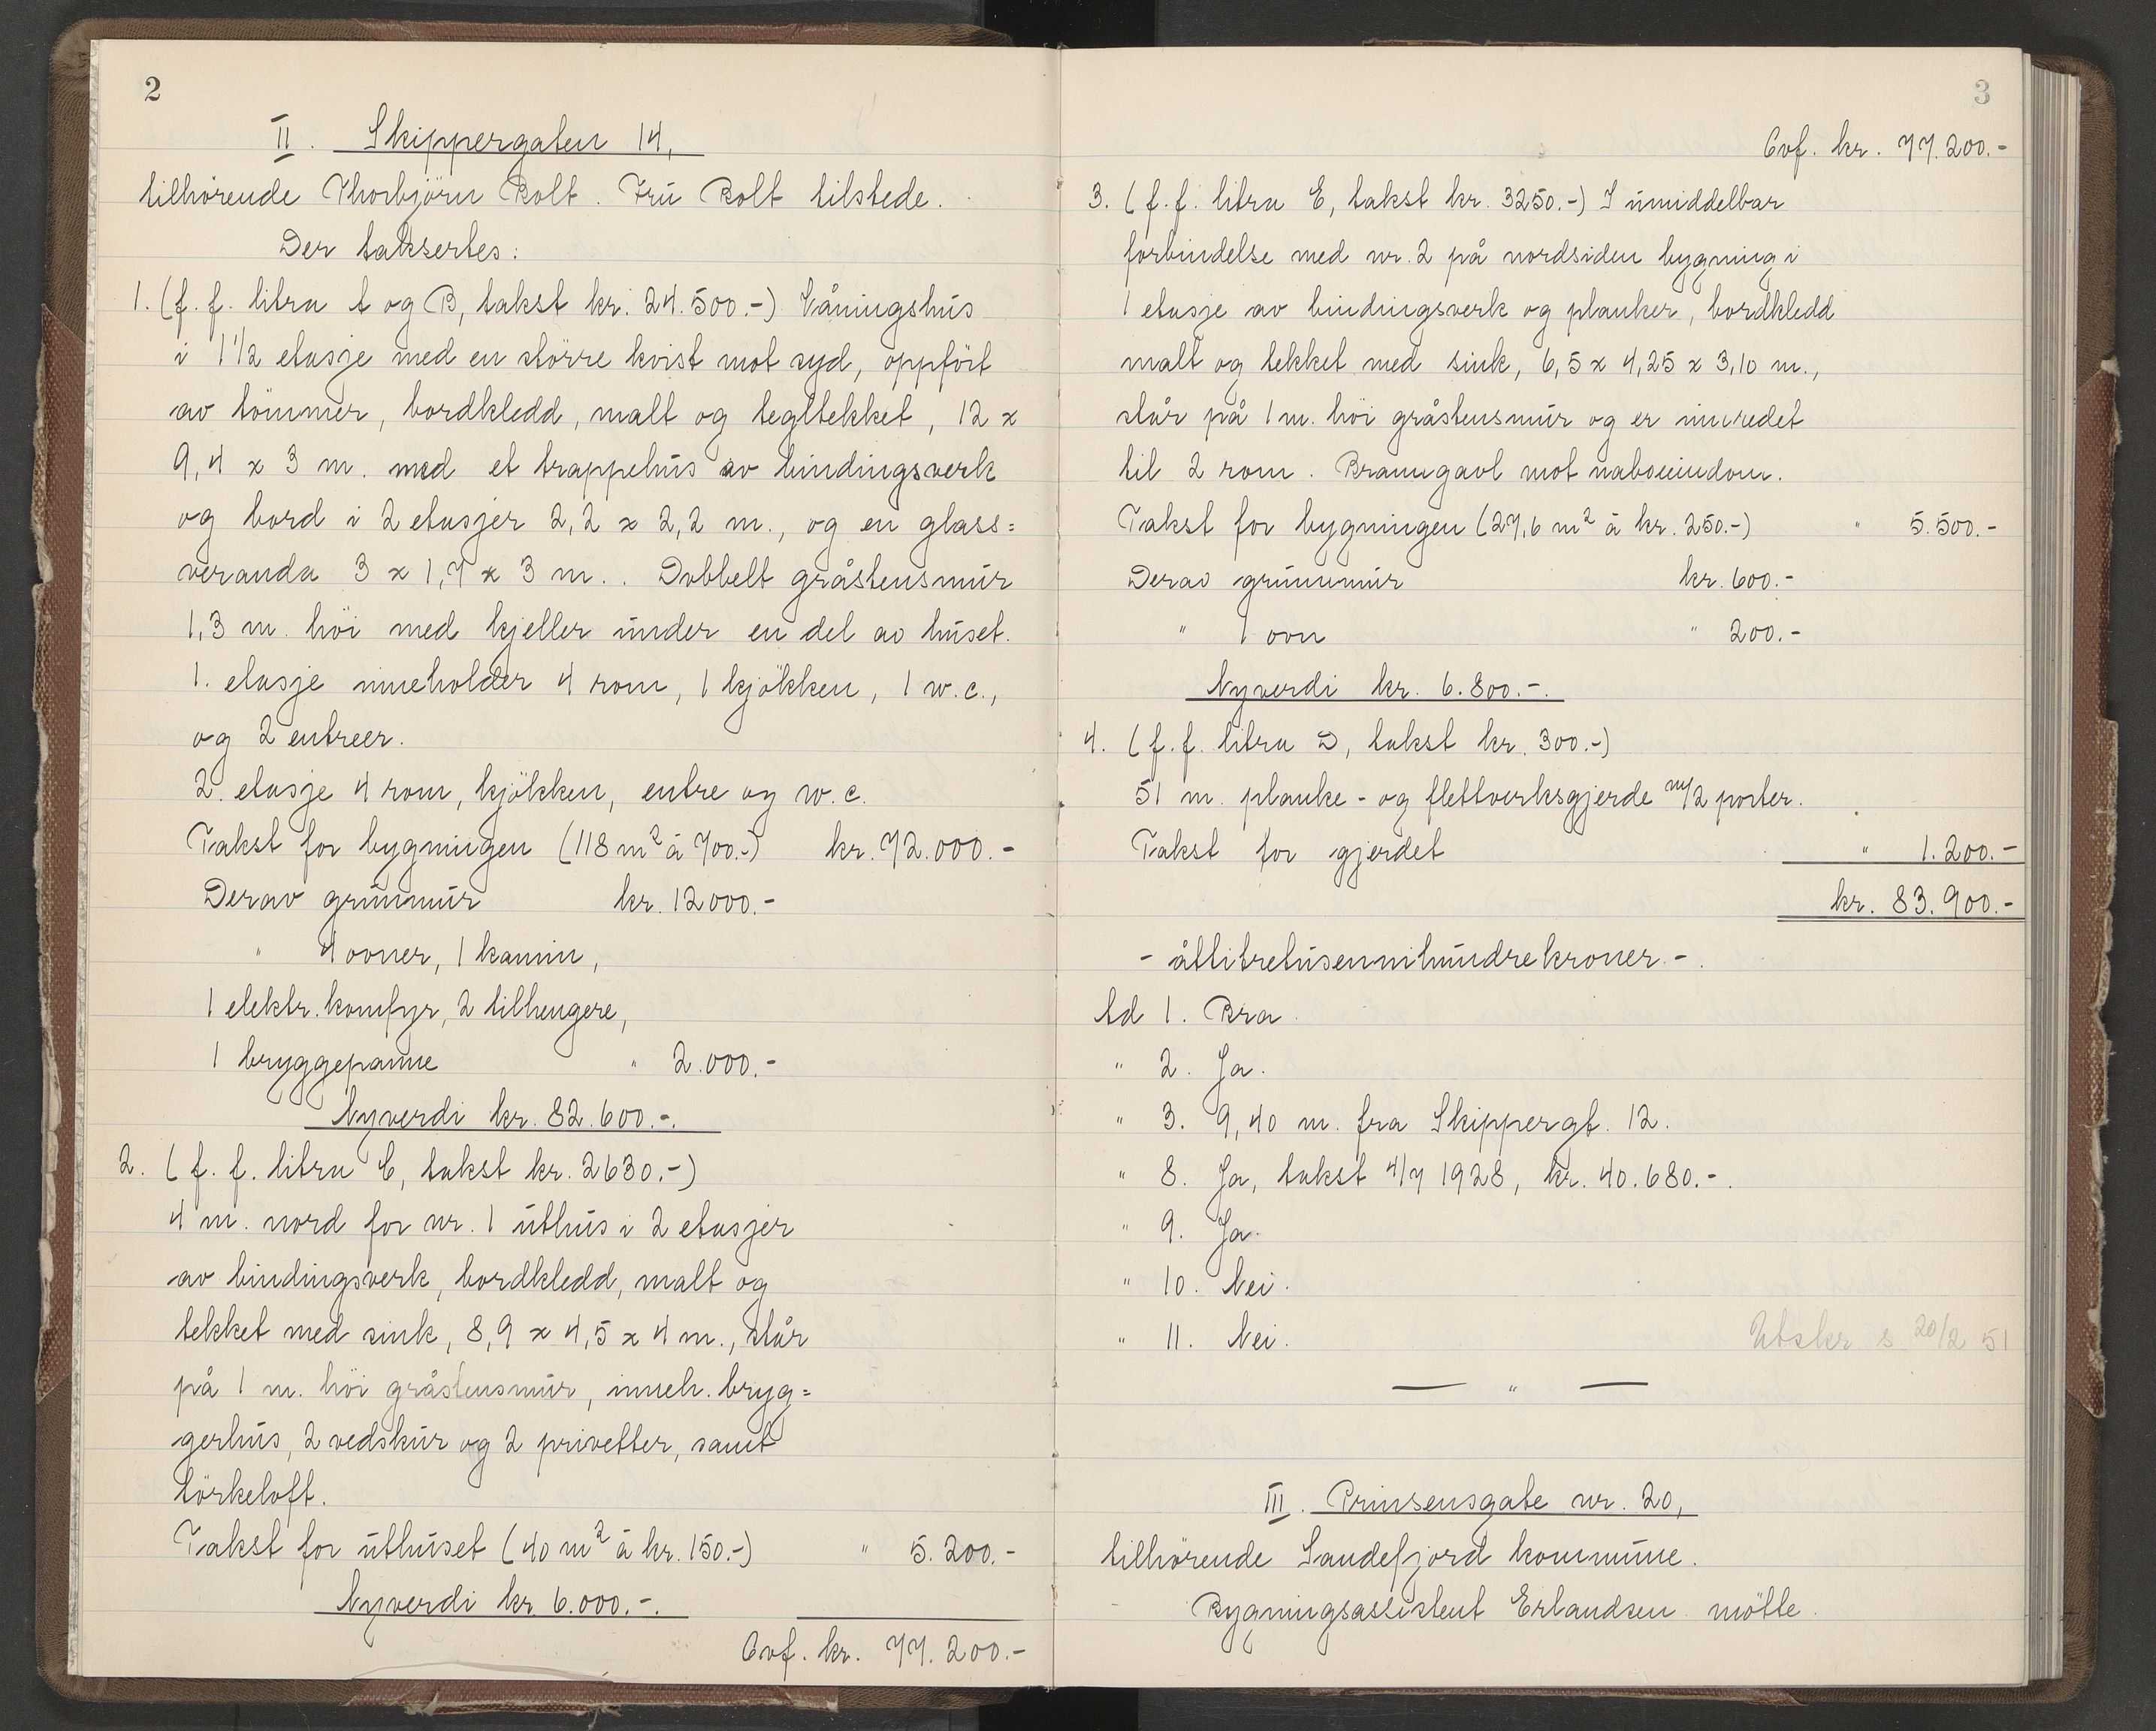 2
II. Skippergaten 14,
tilhörende Thorbjörn Bolt. Fru Bolt tilstede.
Der taksertes:
1. (f. f. litra A og B, takst kr. 24.500.-) Våningshus
i 1 1/2 etasje med en större kvist mot syd, oppfört
av tömmer, bordkledd, malt og tegltekket, 12 x
9,4 x 3 m. med et trappehus av bindingsverk
og bord i 2 etasjer 2,2 x 2,2 m., og en glass=
veranda 3 x 1,7 x 3 m.. Dobbelt gråstensmur
1,3 m. höi med kjeller under en del av huset.
1. etasje inneholder 4 rom, 1 kjökken, 1 w.c.,
og 2 entreer.
2. etasje 4 rom, kjökken, entre og w.c.
Takst for bygningen (118 m² à 700.-) kr. 72.000.-
Derav grunnmur kr. 12000.-
" 4 ovner, 1 kamin,
1 elektr. komfyr, 2 tilhengere,
1 bryggepanne " 2.000.-
Nyverdi kr. 82.600.-.
2. (f. f. litra C, takst kr. 2630.-)
4 m. nord for nr. 1 uthus i 2 etasjer
av bindingsverk, bordkledd, malt og
tekket med sink, 8,9 x 4,5 x 4 m., står
på 1 m. höi gråstensmur, inneh. bryg=
gerhus, 2 vedskur og 2 privetter, samt
törkeloft.
Takst for uthuset (40 m² à kr. 150.-) " 5.200.-
Nyverdi kr 6.000.-.
Ovf. kr. 77.200.-
3
Ovf. kr. 77.200.-
3. (f. f. litra E, takst kr. 3250.-) I umiddelbar
forbindelse med nr. 2 på nordsiden bygning i
1 etasje av bindingsverk og planker, bordkledd
malt og tekket med sink, 6,5 x 4,25 x 3,10 m.,
står på 1 m. höi gråstensmur og er innredet
til 2 rom. Branngavl mot naboeiendom.
Takst for bygningen (27,6 m² à kr. 250.-) " 5.500.-
Derav grunnmur kr. 600.-
" 1 ovn " 200.-
Nyverdi kr. 6.800.-.
4. (f. f. litra D, takst kr. 300.-)
51 m. planke- og flettverksgjerde m/2 porter.
Takst for gjerdet " 1.200.-
kr. 83.900.-
- åttitretusennihundrekroner -.
Ad 1. Bra.
" 2. Ja.
" 3. 9,40 m. fra Skippergt. 12.
" 8. Ja, takst 4/7 1928, kr. 40.680.-.
" 9. Ja.
" 10. Nei.
" 11. Nei.
Utskr s 20/2 51
— " —
III. Prinsensgate nr. 20,
tilhörende Sandefjord kommune.
Bygningsassistent Erlandsen mötte.